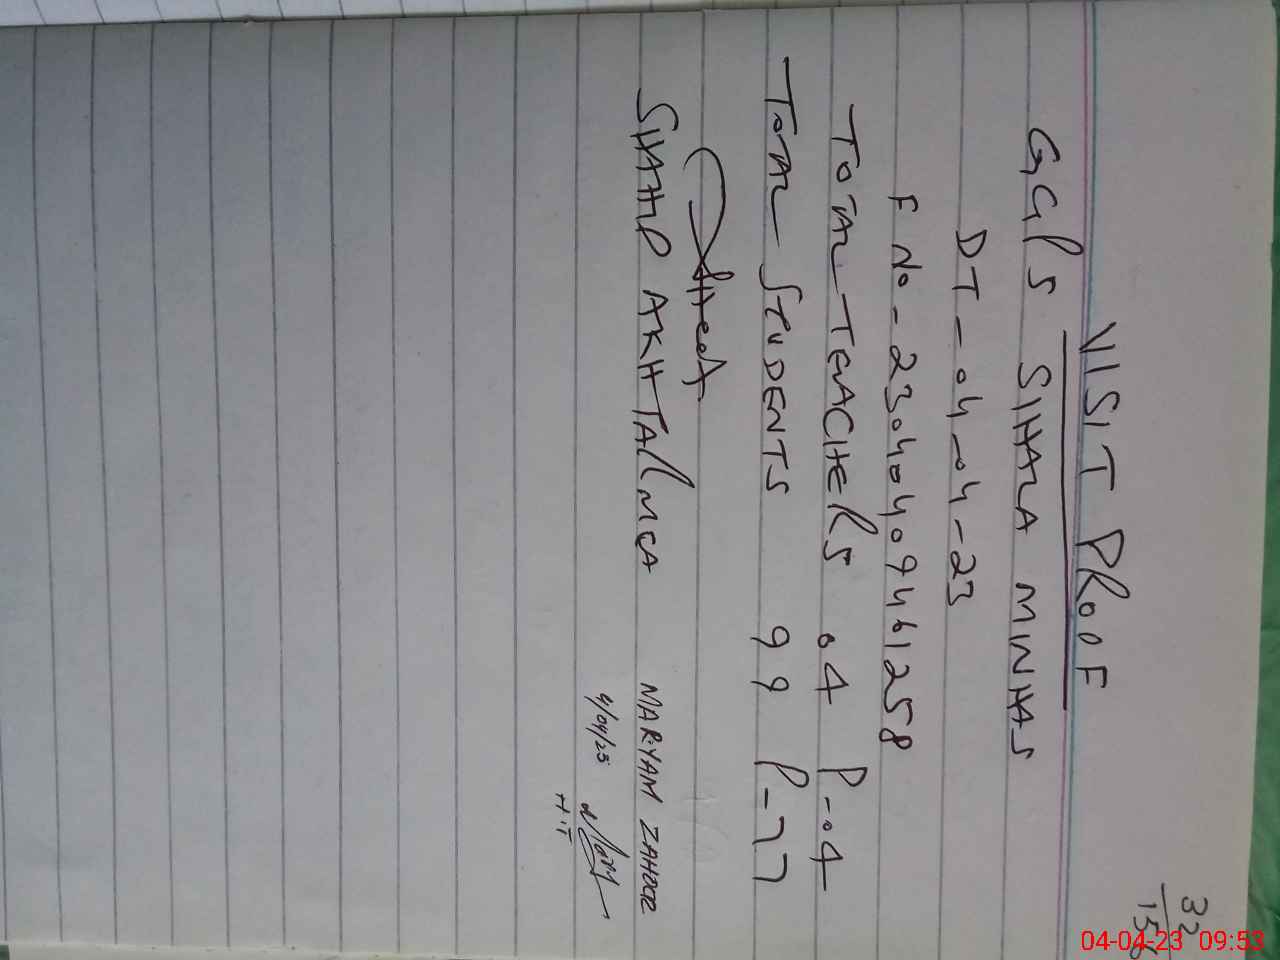 32
15
VISIT PROOF
GGPS SIHALA MINHAS
DT - 04-04-23
F No - 23040409461258
TOTAL TEACHERS 04 P-04
TOTAL STUDENTS 99 P-77
SHAHID AKHTAR MCA MARIYAM ZAHOOR
4/04/23
H.T
04-04-23 09:53